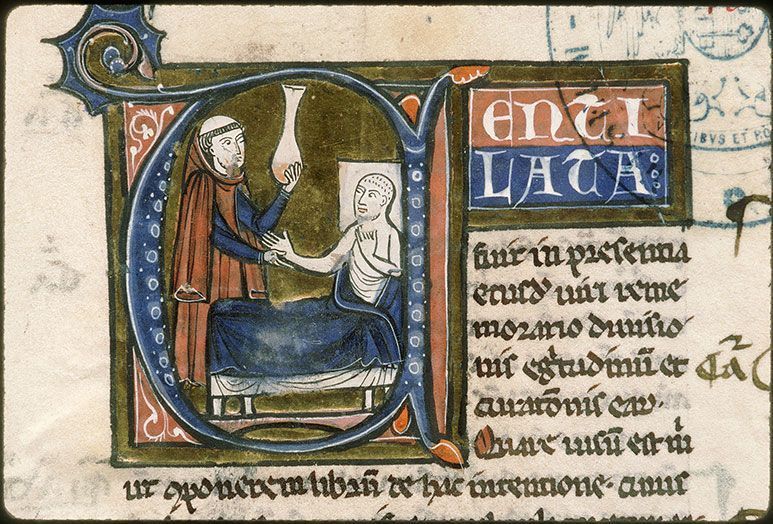 VENTI
LATA
fuit in presentia
eiusd' uiri reme
moratio diuisio
nis eg̾tudinũ et
curatõnis eaꝝ
Quare uisũ est m̃
ut ꝯponerem librũ de hac intentione. cuius
IBVS ET